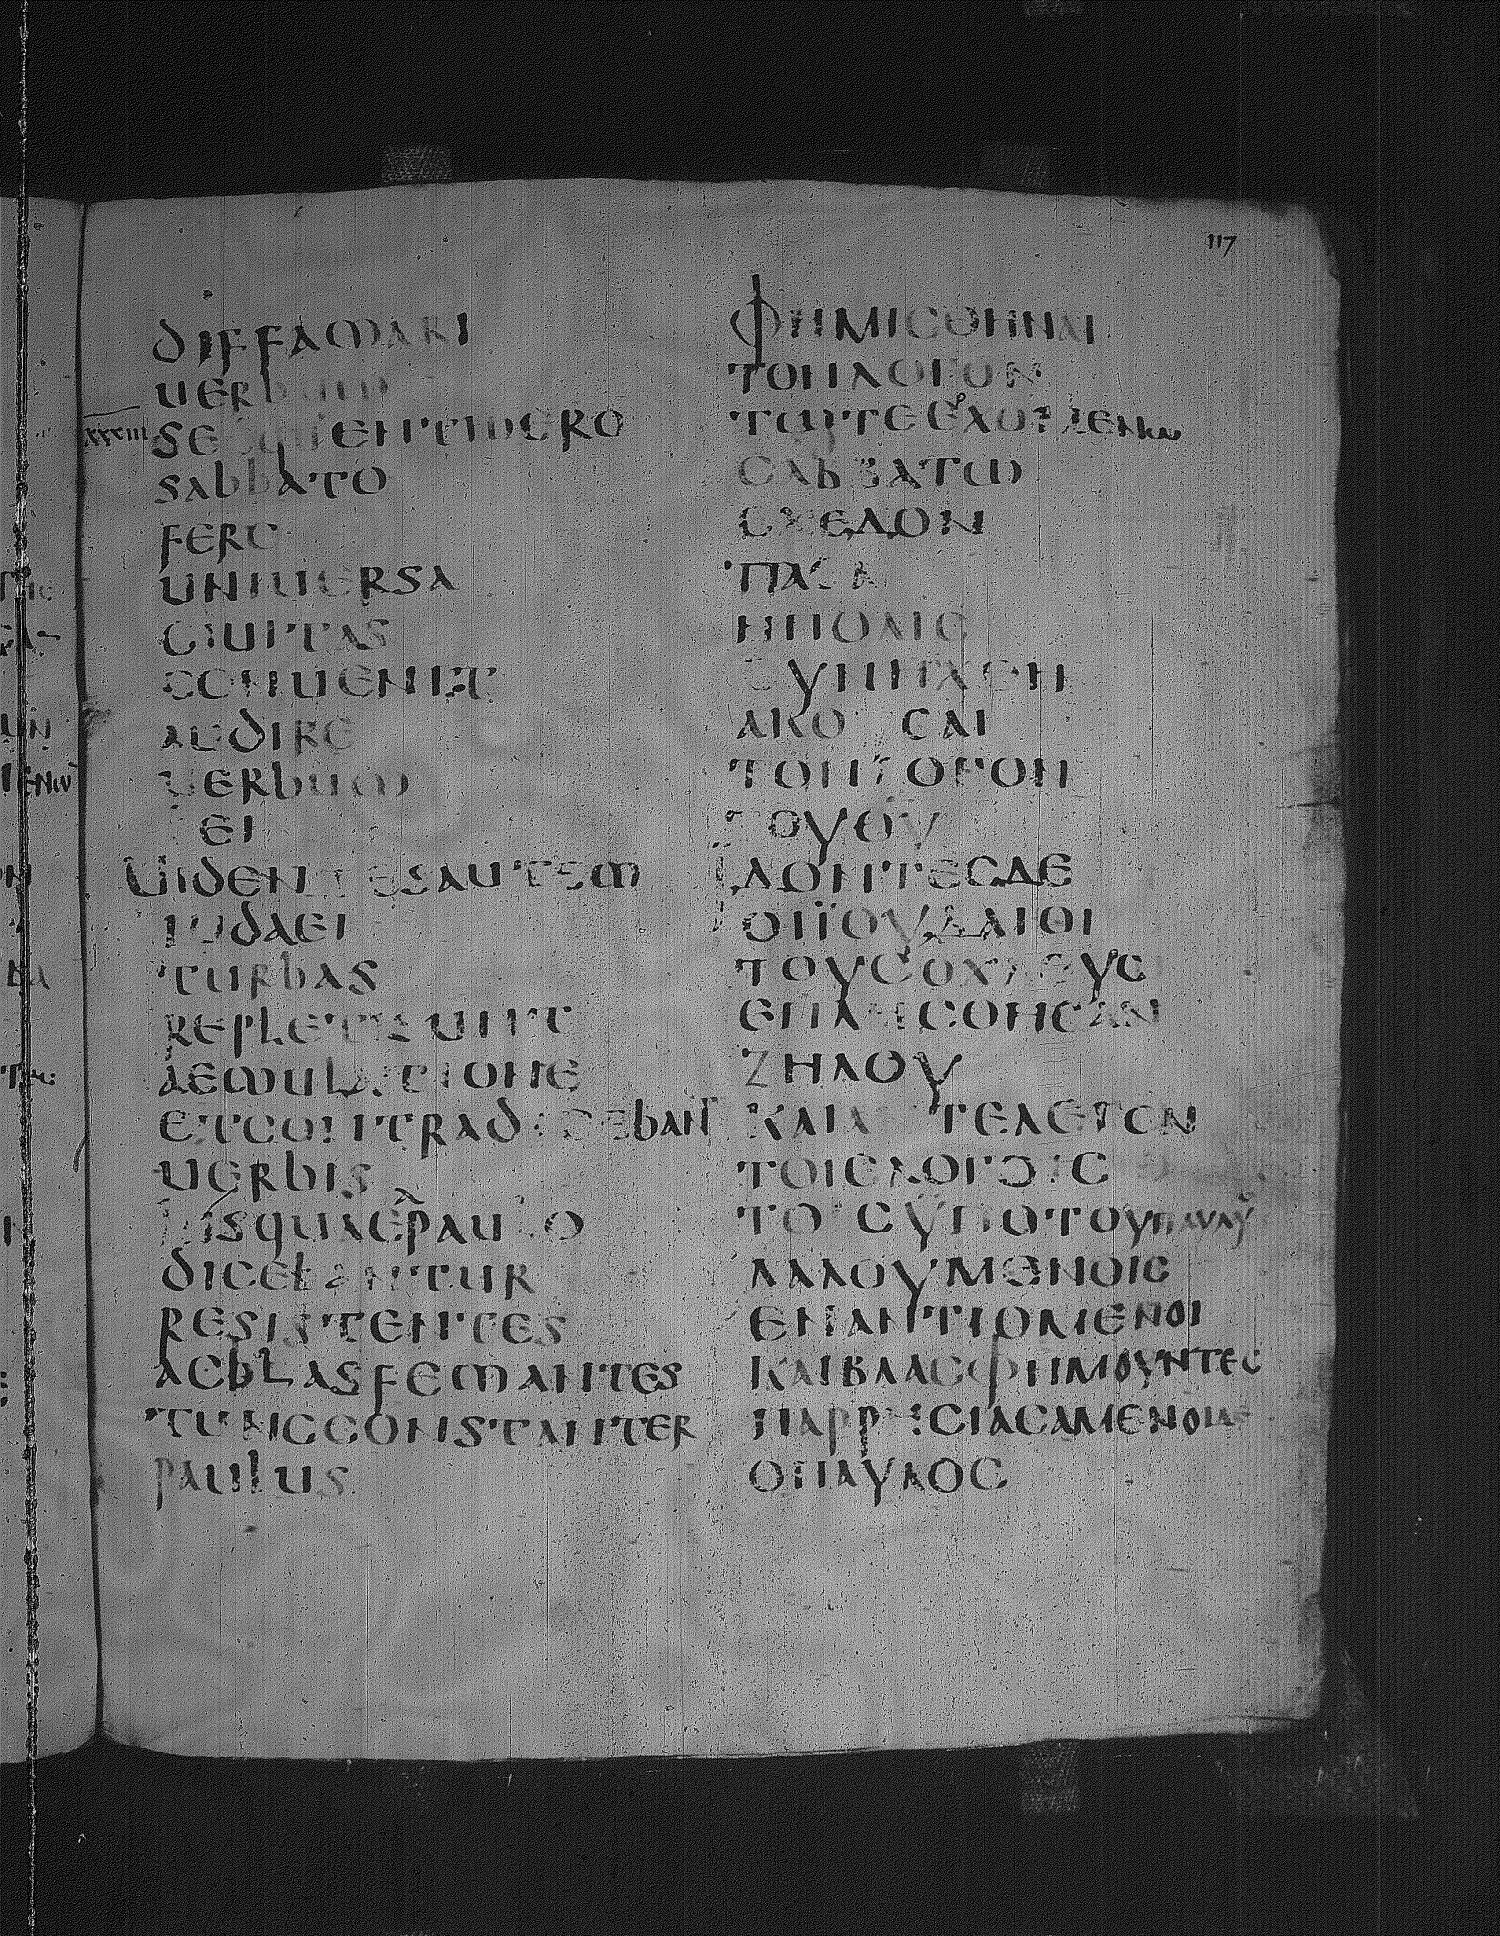 117
diffamari
uerbum
xxxiii sequentiuero
sabbato
fere
uniuersa
ciuitas
conuenit
audire
uerbum
ei
Uidentesautem
iudaei
turbas
repletisunt
aemulatione
etcontradicebant
uerbis
hisquaeapaulo
dicebantur
resistentes
acblasfemantes
tuncconstanter
paulus
ΦΗΜΙCΘΗΝΑΙ
ΤΟΝΛΟΓΟΝ
ΤΩΤΕΕΡΧΟΜΕΝΩ
CΑΒΒΑΤΩ
CΧΕΔΟΝ
ΠΑCΑ
ΗΠΟΛΙC
CΥΝΗΧΘΗ
ΑΚΟΥCΑΙ
ΤΟΝΛΟΓΟΝ
ΤΟΥΘΥ
ΙΔΟΝΤΕCΔΕ
ΟΙΪΟΥΔΑΙΟΙ
ΤΟΥCΟΧΛΟΥC
ΕΠΛΗCΘΗCΑΝ
ΖΗΛΟΥ
ΚΑΙΑΝΤΕΛΕΓΟΝ
ΤΟΙCΛΟΓΟΙC
ΤΟΙCΫΠΟΤΟΥΠΑΥΛΟΥ
ΛΑΛΟΥΜΕΝΟΙC
ΕΝΑΝΤΙΟΜΕΝΟΙ
ΚΑΙΒΛΑCΦΗΜΟΥΝΤΕC
ΠΑΡΡΗCΙΑCΑΜΕΝΟΙΔΕ
ΟΠΑΥΛΟC